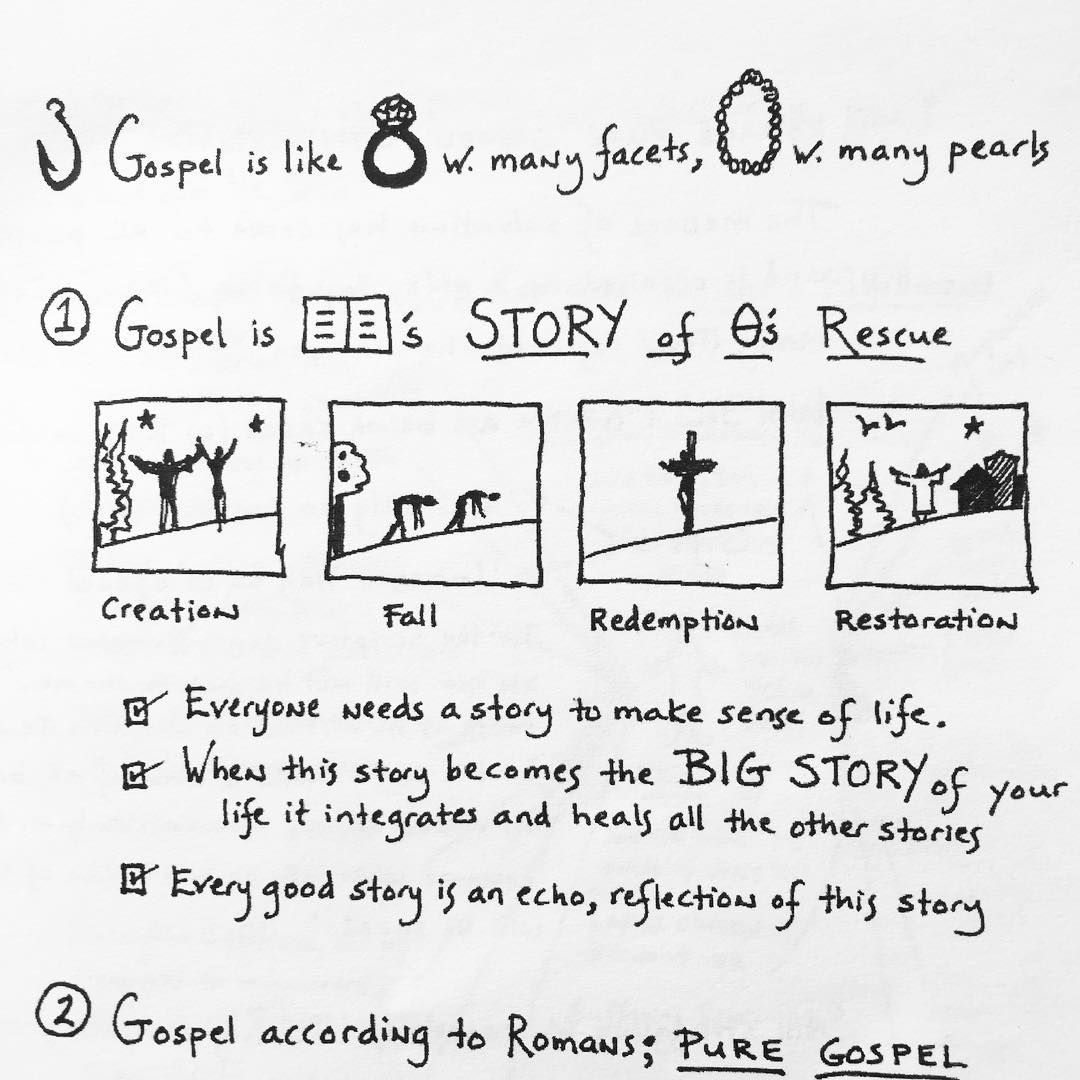 Gospel is like w. many facets, w. many pearls
1 Gospel is 's STORY of θ's Rescue
Creation Fall Redemption Restoration
Everyone needs a story to make sense of life.
When this story becomes the BIG STORY of your
life it integrates and heals all the other stories
Every good story is an echo, reflection of this story
2 Gospel according to Romans; PURE GOSPEL